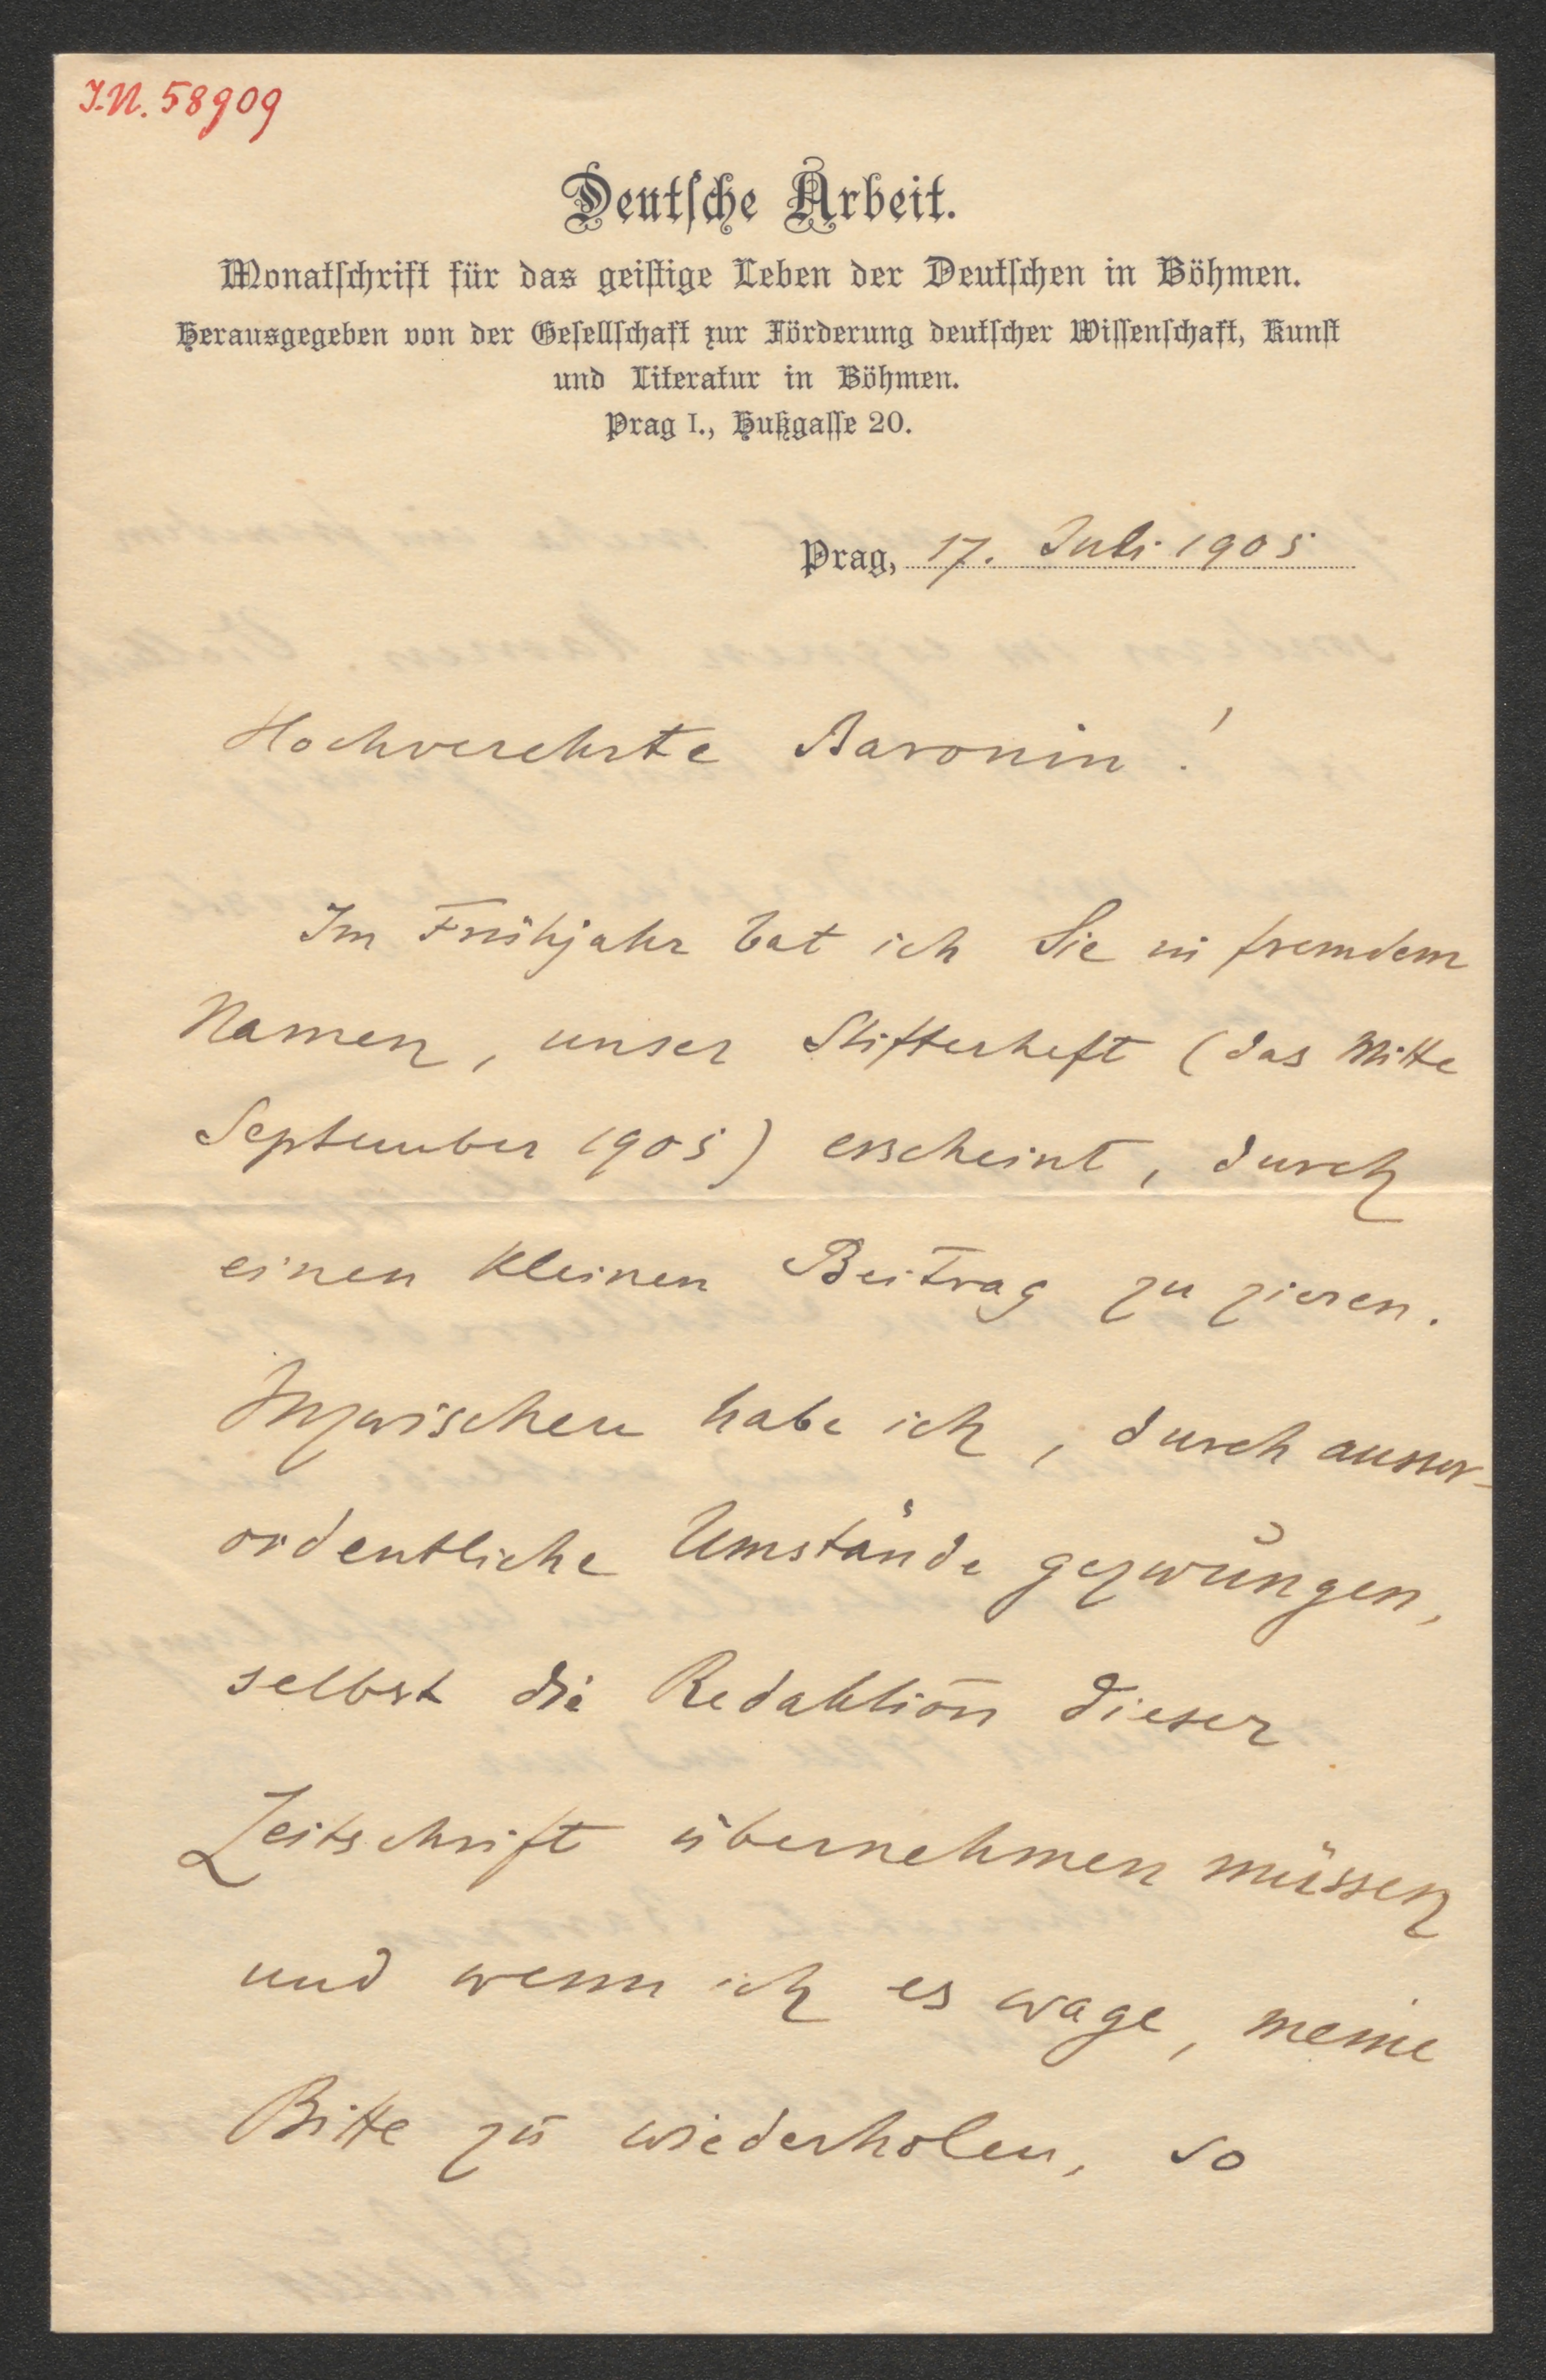 I.N. 58909
Deutſche Arbeit.
Monatſchrift für das geiſtige Leben der Deutſchen in Böhmen.
Herausgegeben von der Geſellſchaft zur Förderung deutſcher Wiſſenſchaft, Kunſt
und Literatur in Böhmen.
Prag I., Hußgaſſe 20.
Prag, 17. Juli 1905
Hochverehrte Baronin!
Im Frühjahr bat ich Sie in fremdem
Namen, unser Stifterheft (das Mitte
September 1905) erscheint, durch
einen kleinen Beitrag zu zieren.
Inzwischen habe ich, durch ausser-
ordentliche Umstände gezwungen,
selbst die Redaktion dieser
Zeitschrift übernehmen müssen
und wenn ich es wage, meine
Bitte zu wiederholen, so